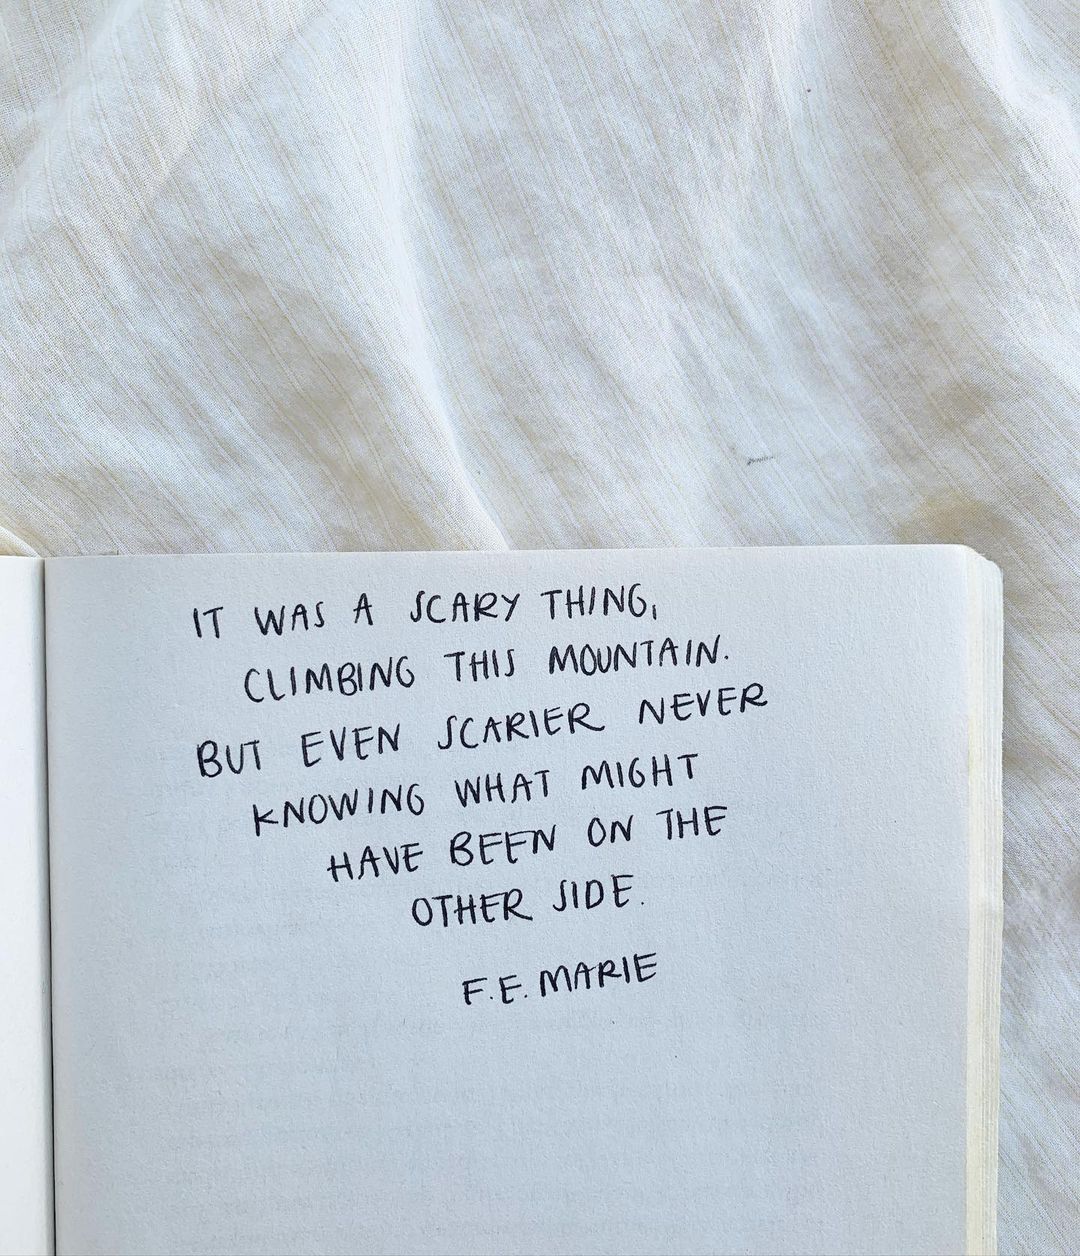 IT WAS A SCARY THING,
CLIMBING THIS MOUNTAIN.
BUT EVEN SCARIER NEVER
KNOWING WHAT MIGHT
HAVE BEEN ON THE
OTHER SIDE.
F.E. MARIE